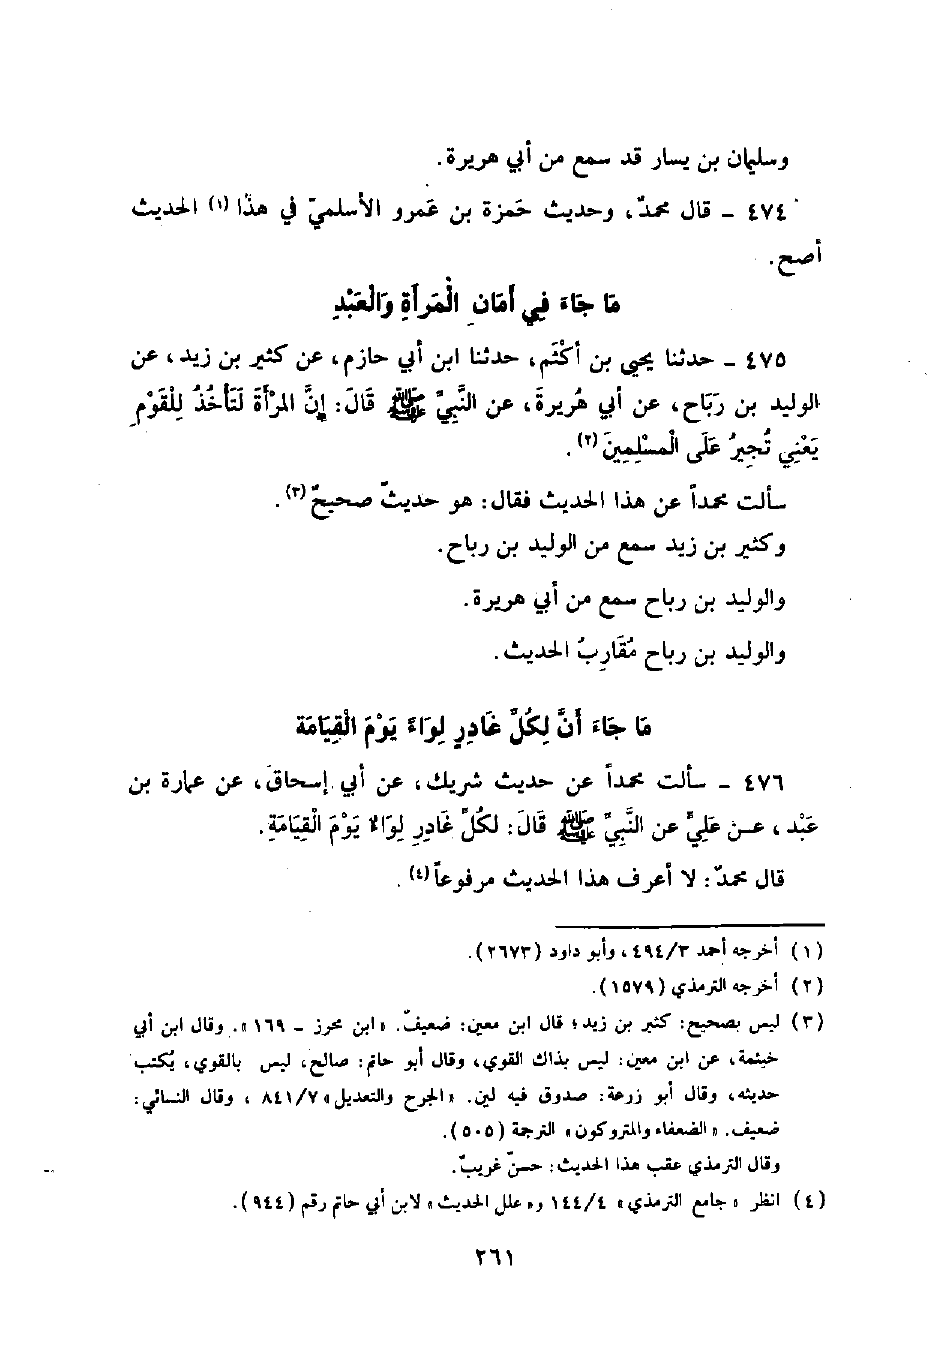 وسليمان بن يسار قد سمع من أبي هريرة.
٤٧٤ - قال محمدٌ، وحديث حَمزة بن عَمرو الأسلميّ في هذا (١) الحديث
أصح.
مَا جَاءَ فِي أَمَانِ الْمَرأَةِ وَالْعَبْدِ
٤٧٥ - حدثنا يحيى بن أكْثَم، حدثنا ابن أبي حازم، عن كثير بن زيد، عن
الوليد بن رَبَاح، عن أبي هُريرةَ، عن النَّبِيِّ ﷺ قَالَ: إِنَّ المرْأَةَ لَتَأخُذُ لِلْقَوْمِ
يَعْنِي تُجِيرُ عَلَى الْمسْلِمِينَ (٢).
سألت محمداً عن هذا الحديث فقال: هو حديثٌ صحيحٌ (٣).
وكثير بن زيد سمع من الوليد بن رباح.
والوليد بن رباح سمع من أبي هريرة.
والوليد بن رباح مُقَارِبُ الحديث.
مَا جَاءَ أَنَّ لِكُلِّ غَادِرٍ لِوَاءً يَوْمَ الْقِيَامَة
٤٧٦ - سألت محمداً عن حديث شريك، عن أبي إسحاق، عن عمارة بن
عَبْد، عن عَليٍّ عن النَّبِيِّ ﷺ قَالَ: لكُلِّ غَادِرٍ لِوَاءٌ يَوْمَ الْقِيَامَةِ.
قال محمدٌ: لا أعرف هذا الحديث مرفوعاً (٤).
(١) أخرجه أحمد ٤٩٤/٣، وأبو داود (٢٦٧٣).
(٢) أخرجه الترمذي (١٥٧٩).
(٣) ليس بصحيح: كثير بن زيد؛ قال ابن معين: ضعيفٌ. «ابن محرز - ١٦٩». وقال ابن أبي
خيثمة، عن ابن معين: ليس بذاك القوي، وقال أبو حاتم: صالح، ليس بالقوي، يُكتب
حديثه، وقال أبو زرعة: صدوق فيه لين. «الجرح والتعديل» ٨٤١/٧، وقال النسائي:
ضعيف. «الضعفاء والمتروكون» الترجمة (٥٠٥).
وقال الترمذي عقب هذا الحديث: حسنٌ غريبٌ.
(٤) انظر «جامع الترمذي» ١٤٤/٤ و«علل الحديث» لابن أبي حاتم رقم (٩٤٤).
٢٦١